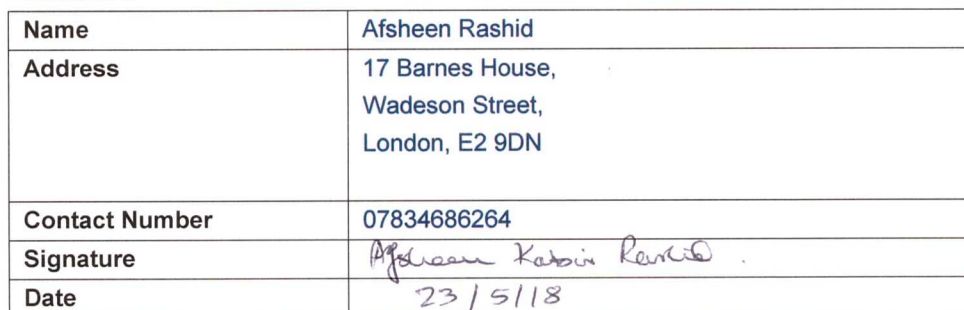 Name Afsheen Rashid
Address 17 Barnes House,
Wadeson Street,
London, E2 9DN
Contact Number 07834686264
Signature Afsheen Kabir Rashid.
Date 23/5/18